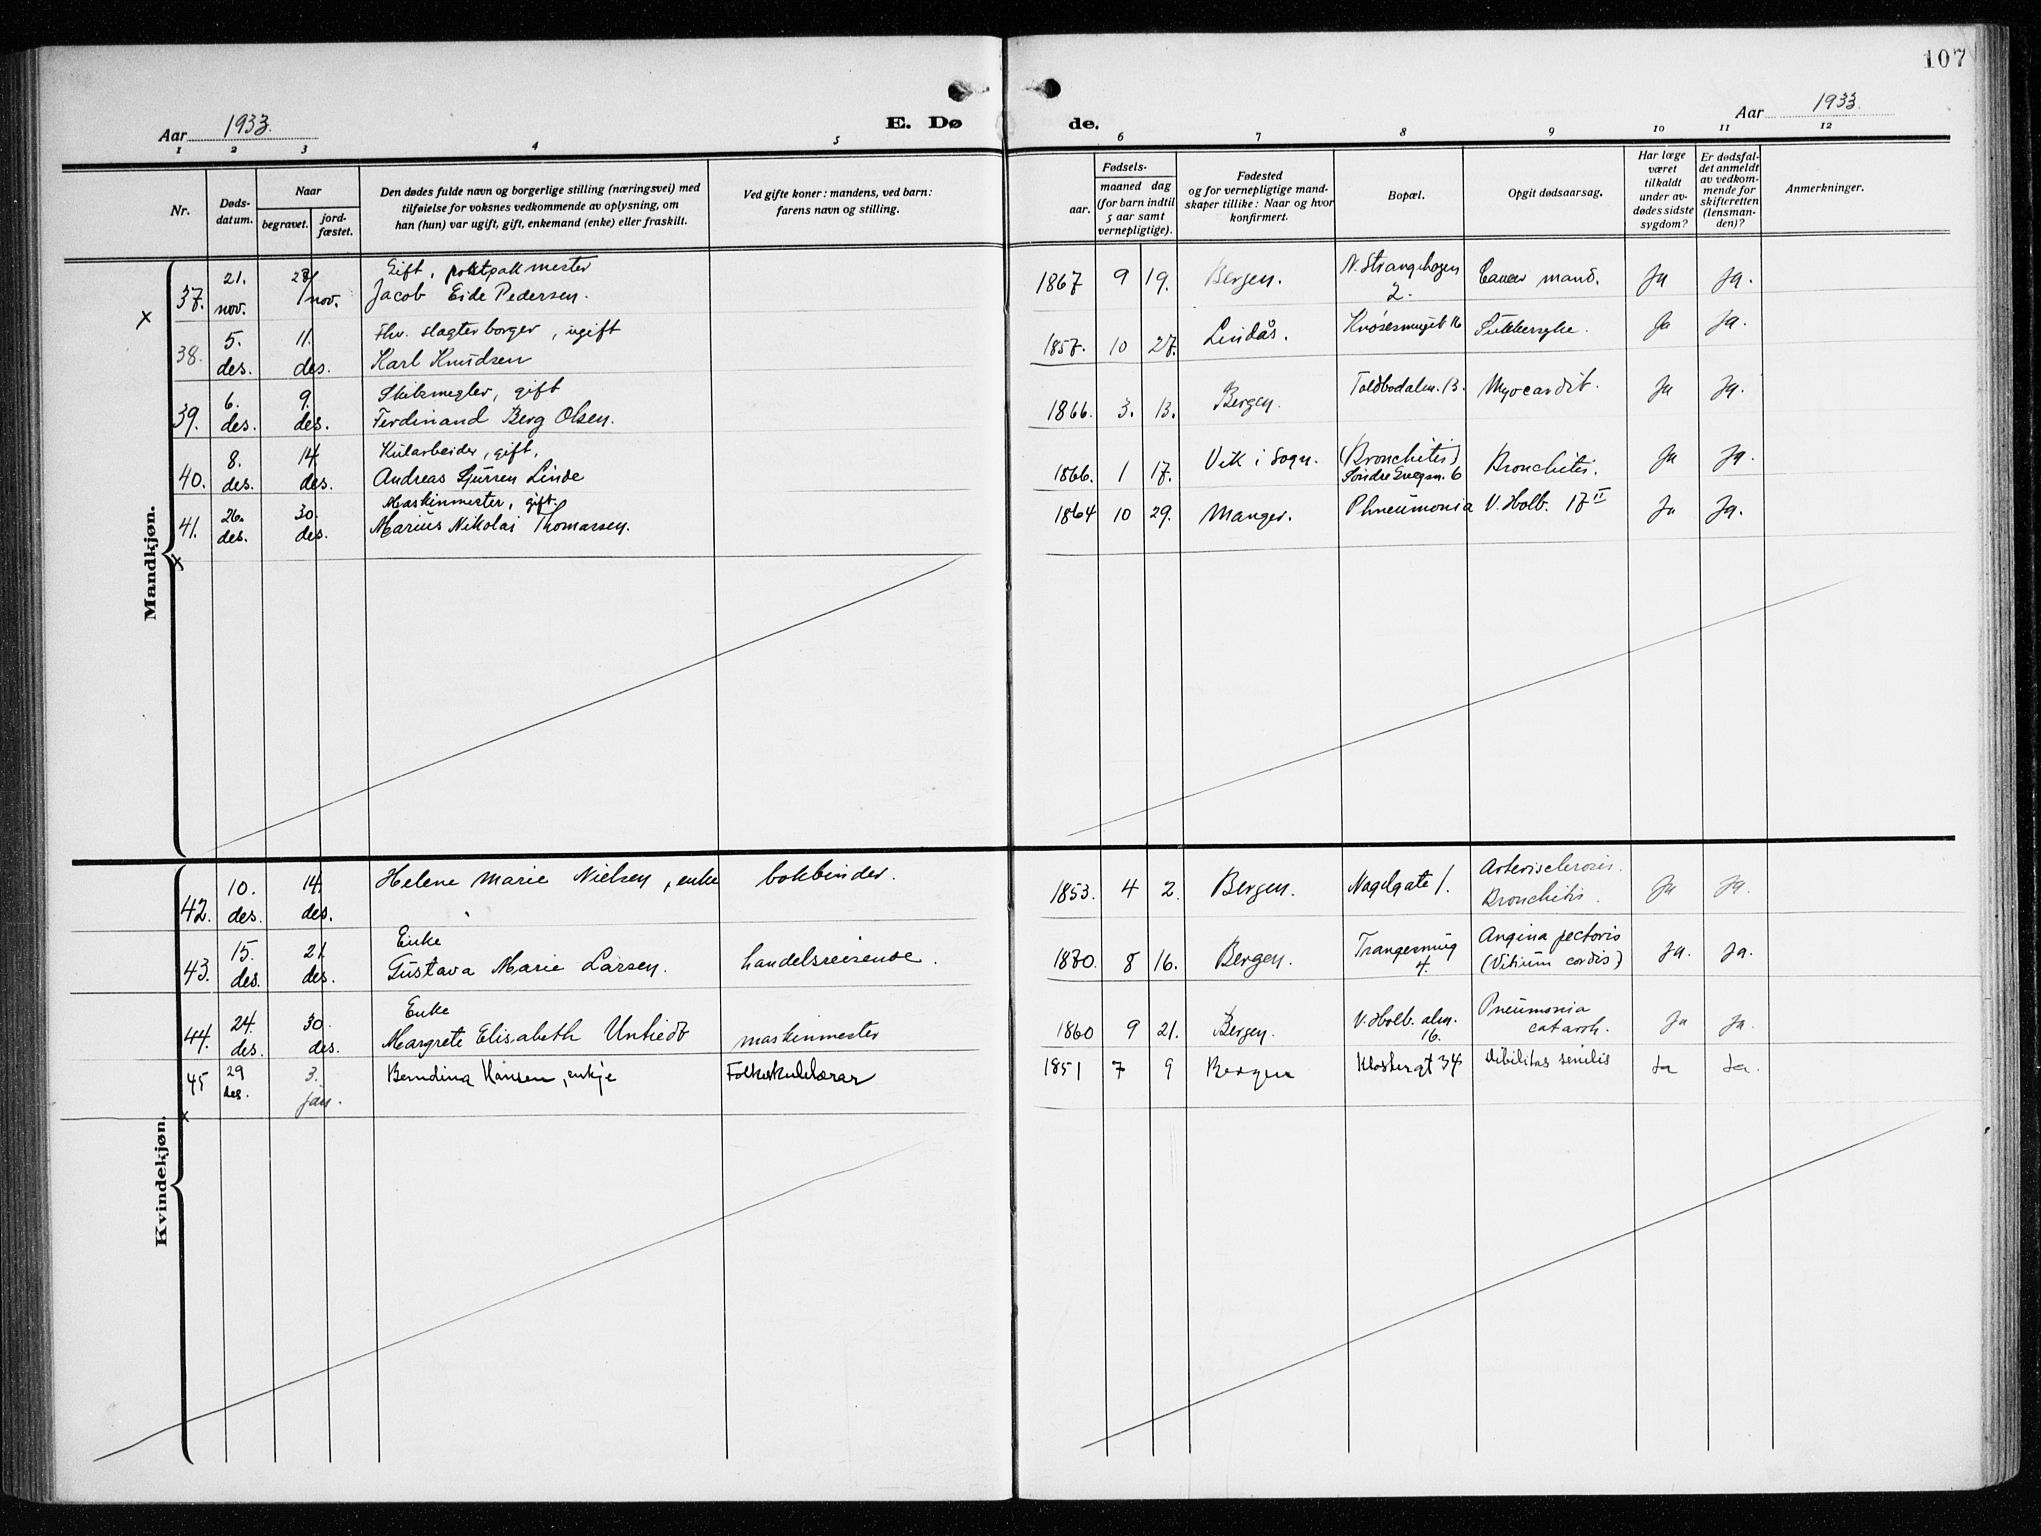 107
Aar 1933.
E. Dø
de.
Aar 1933.
1 2 3 4 5 6 7 8 9 10 11 12
Nr.
Døds-
datum.
Naar
begravet.
jord-
fæstet.
Den dødes fulde navn og borgerlige stilling (næringsvei) med
tilføielse for voksnes vedkommende av oplysning, om
han (hun) var ugift, gift, enkemand (enke) eller fraskilt.
Ved gifte koner: mandens, ved barn:
farens navn og stilling.
Fødsels-
aar.
maaned dag
(for barn indtil
5 aar samt
vernepligtige).
Fødested
og for vernepligtige mand-
skaper tillike: Naar og hvor
konfirmert.
Bopæl.
Opgit dødsaarsag.
Har læge
været
tilkaldt
under av-
dødes sidste
sygdom?
Er dødsfal-
det anmeldt
av vedkom-
mende for
skifteretten
(lensman-
den)?
Anmerkninger.
Mandkjøn.
x 37. 21. nov. 28/ nov. Gift, postpakmester
Jacob Eide Pedersen. 1867 9 19. Bergen. N. Strangehagen 2. Cancer mand. Ja Ja.
38. 5. des. 11. des. Fhv. slagterborger, ugift
Karl Knudsen 1857. 10 27. Lindås. Knøsesmuget 16 Sukkersyke. Ja Ja.
39. 6. des. 9. des. Skibsmegler, gift
Ferdinand Berg Olsen. 1866. 3. 13. Bergen. Toldbodalm. 13. Myocardit. Ja Ja.
40. 8. des. 14. des. Kularbeider, gift,
Andreas Sjursen Linde 1866. 1 17. Vik i Sogn. (Bronchitis)
Søndre 6 Bronchitis. Ja Ja.
41. 26. des. 30. des. Maskinmester, gift.
Marius Nikolai Thomassen. 1864 10 29. Manger. Phneumonia V. Holb. 17 II Ja Ja.
x
Kvindekjøn.
42. 10. des. 14. des. Helene Marie Nielsen, enke bokbinder. 1853. 4 2. Bergen. Nagelgate 1. Arteriosclerosis.
Bronchitis. Ja Ja.
43. 15. des. 21. des. Enke
Gustava Marie Larsen. handelsreisende. 1870. 8 16. Bergen. Trangesmug 4. Angina pectoris
(Vitium cordis) Ja. Ja.
44. 24. des. 30. des. Enke
Margrete Elisabeth Untiedt maskinmester 1860 9 21. Bergen. V. Holb. alm. 16. Pneumonia
catarrh. Ja Ja.
45 29 des. 3. jan. Berndina Hansen, enkje Folkeskulelærar 1851 7 9 Bergen Klostergt 34 debilitas senilis Ja Ja.
x